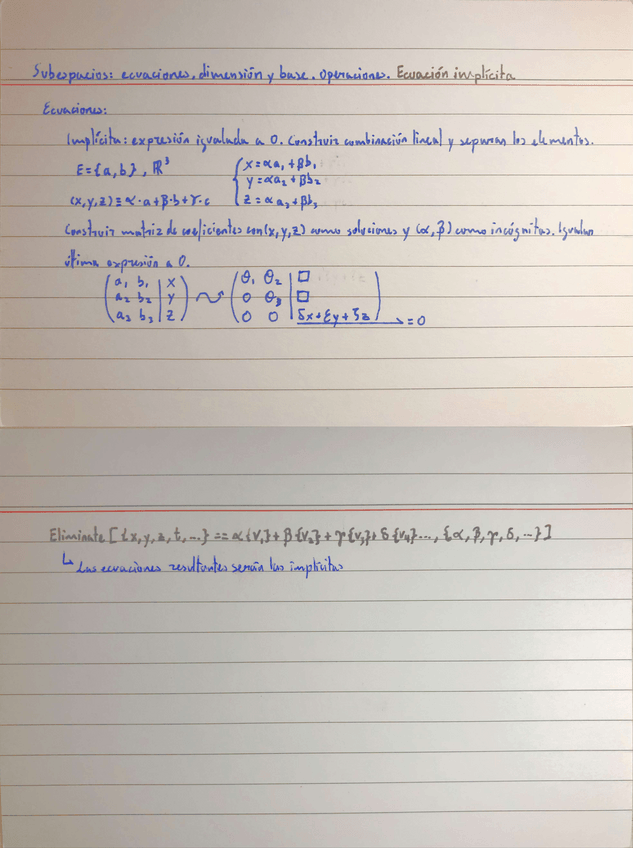 Subespacios: ecuaciones, dimensión y base. Operaciones. Ecuación implícita
Ecuaciones:
Implícita: expresión igualada a 0. Construir combinación lineal y separar los elementos.
E={a,b}, ℝ³
{ x=αa₁+βb₁
y=αa₂+βb₂
z=αa₃+βb₃
(x,y,z)≡α·a+β·b+γ·c
Construir matriz de coeficientes con (x,y,z) como soluciones y (α,β) como incógnitas. Igualar
última expresión a 0.
( a₁ b₁ | x ) ⤳ ( θ₁ θ₂ | □ )
( a₂ b₂ | y ) ( 0 θ₃ | □ )
( a₃ b₃ | z ) ( 0 0 | δx+ξy+ζz ) → =0
Eliminate [{x,y,z,t,...} == α{v₁}+β{v₂}+γ{v₃}+δ{v₄}..., {α,β,γ,δ,...}]
↳ Las ecuaciones resultantes serán las implícitas